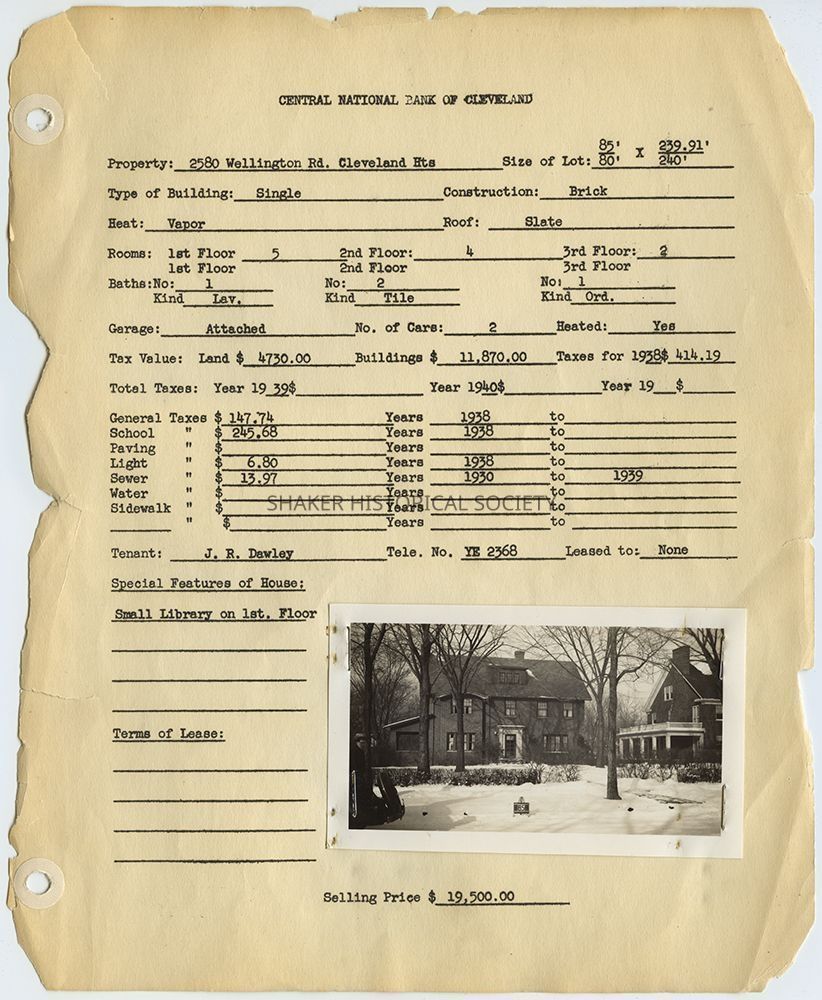 CENTRAL NATIONAL BANK OF CLEVELAND
85' X 239.91'
Property: 2580 Wellington Rd. Cleveland Hts Size of Lot: 80' 240'
Type of Building: Single Construction: Brick
Heat: Vapor Roof: Slate
Rooms: 1st Floor 5 2nd Floor: 4 3rd Floor: 2
1st Floor 2nd Floor 3rd Floor
Baths:No: 1 No: 2 No: 1
Kind Lav. Kind Tile Kind Ord.
Garage: Attached No. of Cars: 2 Heated: Yes
Tax Value: Land $ 4730.00 Buildings $ 11,870.00 Taxes for 1938$ 414.19
Total Taxes: Year 19 39$ Year 1940$ Year 19 $
General Taxes $ 147.74 Years 1938 to
School " $ 245.68 Years 1938 to
Paving " $ Years to
Light " $ 6.80 Years 1938 to
Sewer " $ 13.97 Years 1930 to 1939
Water " $ Years to
SHAKER HISTORICAL SOCIETY
Sidewalk " $ Years to
" $ Years to
Tenant: J. R. Dawley Tele. No. YE 2368 Leased to: None
Special Features of House:
Small Library on 1st. Floor
Terms of Lease:
Selling Price $ 19,500.00